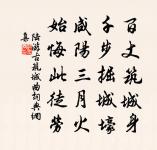 百丈筑城身
千步掘城壕
咸陽三月火
始悔此徒劳
陆游古筑城曲詞典網
集